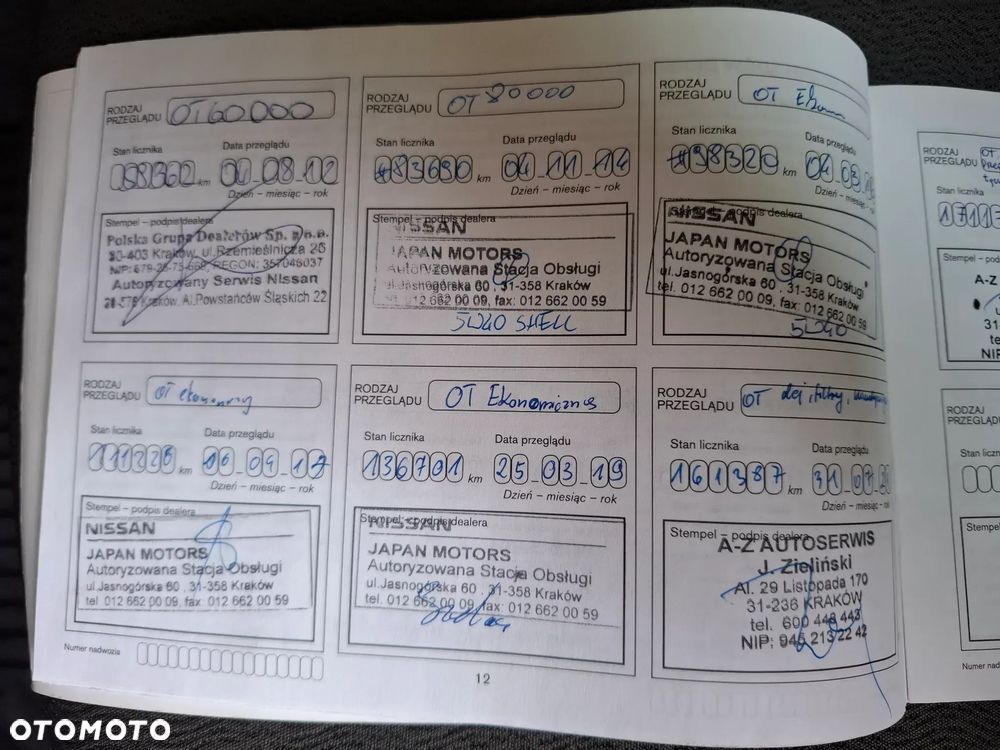 RODZAJ PRZEGLĄDU OT 60000
Stan licznika
Data przeglądu
58362 km 04 08 12
Dzień – miesiąc – rok
Stempel – podpis dealera
Polska Grupa Dealerów Sp. z o.o.
30-403 Kraków, ul. Rzemieślnicza 26
Autoryzowany Serwis Nissan
Kraków, Al. Powstańców Śląskich 22
RODZAJ PRZEGLĄDU OT 80000
Stan licznika
Data przeglądu
83690 km 04 11 14
Dzień – miesiąc – rok
Stempel – podpis dealera
NISSAN
JAPAN MOTORS
Autoryzowana Stacja Obsługi
ul.Jasnogórska 60 . 31-358 Kraków
tel. 012 662 00 09, fax: 012 662 00 59
5W40 SHELL
RODZAJ PRZEGLĄDU OT
Stan licznika
Data przeglądu
98320 km 04 03
Dzień – miesiąc – rok
Stempel – podpis dealera
NISSAN
JAPAN MOTORS
Autoryzowana Stacja Obsługi
ul.Jasnogórska 60 . 31-358 Kraków
tel. 012 662 00 09, fax: 012 662 00 59
5W40
RODZAJ PRZEGLĄDU OT ekonomiczny
Stan licznika
Data przeglądu
111226 km 06 04 17
Dzień – miesiąc – rok
Stempel – podpis dealera
NISSAN
JAPAN MOTORS
Autoryzowana Stacja Obsługi
ul.Jasnogórska 60 . 31-358 Kraków
tel. 012 662 00 09, fax: 012 662 00 59
RODZAJ PRZEGLĄDU OT Ekonomiczny
Stan licznika
Data przeglądu
136701 km 25 03 19
Dzień – miesiąc – rok
Stempel – podpis dealera
NISSAN
JAPAN MOTORS
Autoryzowana Stacja Obsługi
ul.Jasnogórska 60 . 31-358 Kraków
tel. 012 662 00 09, fax: 012 662 00 59
RODZAJ PRZEGLĄDU OT olej, filtry,
Stan licznika
Data przeglądu
161387 km 31 07
Dzień – miesiąc – rok
Stempel – podpis dealera
A-Z AUTOSERWIS
J. Zieliński
Al. 29 Listopada 170
31-236 KRAKÓW
tel. 600 448 443
NIP: 945 213 22 42
Numer nadwozia
12
RODZAJ PRZEGLĄDU OT
Stan licznika
A-Z
31
te
NIP
RODZAJ PRZEGLĄDU
Stempel
OTOMOTO